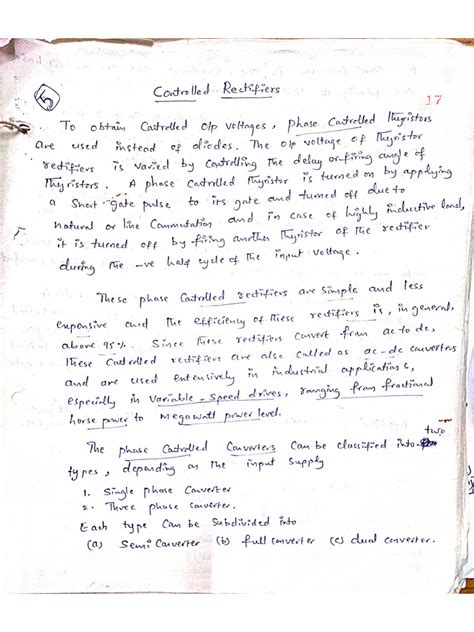 5
Controlled Rectifiers
17
To obtain Controlled o/p voltages, phase Controlled thyristors
are used instead of diodes. The o/p voltage of thyristor
rectifiers is varied by controlling the delay or firing angle of
thyristors. A phase Controlled thyristor is turned on by applying
a short gate pulse to its gate and turned off due to
natural or line Commutation and in case of highly inductive load,
it is turned off by firing another thyristor of the rectifier
during the -ve half cycle of the input voltage.
These phase Controlled rectifiers are simple and less
expensive and the efficiency of these rectifiers is, in general,
above 95%. Since these rectifiers Convert from ac to dc,
these Controlled rectifiers are also called as ac-dc converters
and are used extensively in industrial applications,
especially in Variable-Speed drives, ranging from fractional
horse power to Megawatt power level.
two
The phase Controlled Converters Can be classified into
types, depending on the input supply
1. Single phase Converter
2. Three phase Converter.
Each type Can be Subdivided into
(a) Semi Converter (b) full Converter (c) dual Converter.